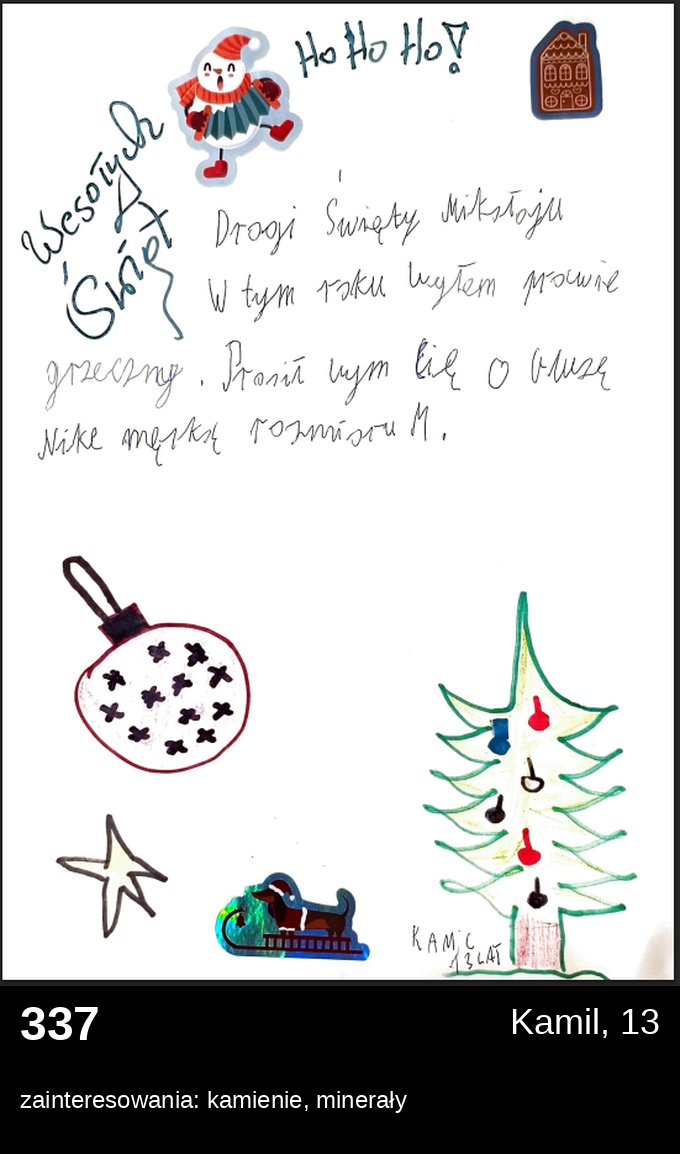 Ho Ho Ho!
Wesołych
Świąt
Drogi Święty Mikołaju
W tym roku byłem prawie
grzeczny. Prosił bym Cię o bluzę
Nike męską rozmiaru M.
KAMIL
13 LAT
337
Kamil, 13
zainteresowania: kamienie, minerały